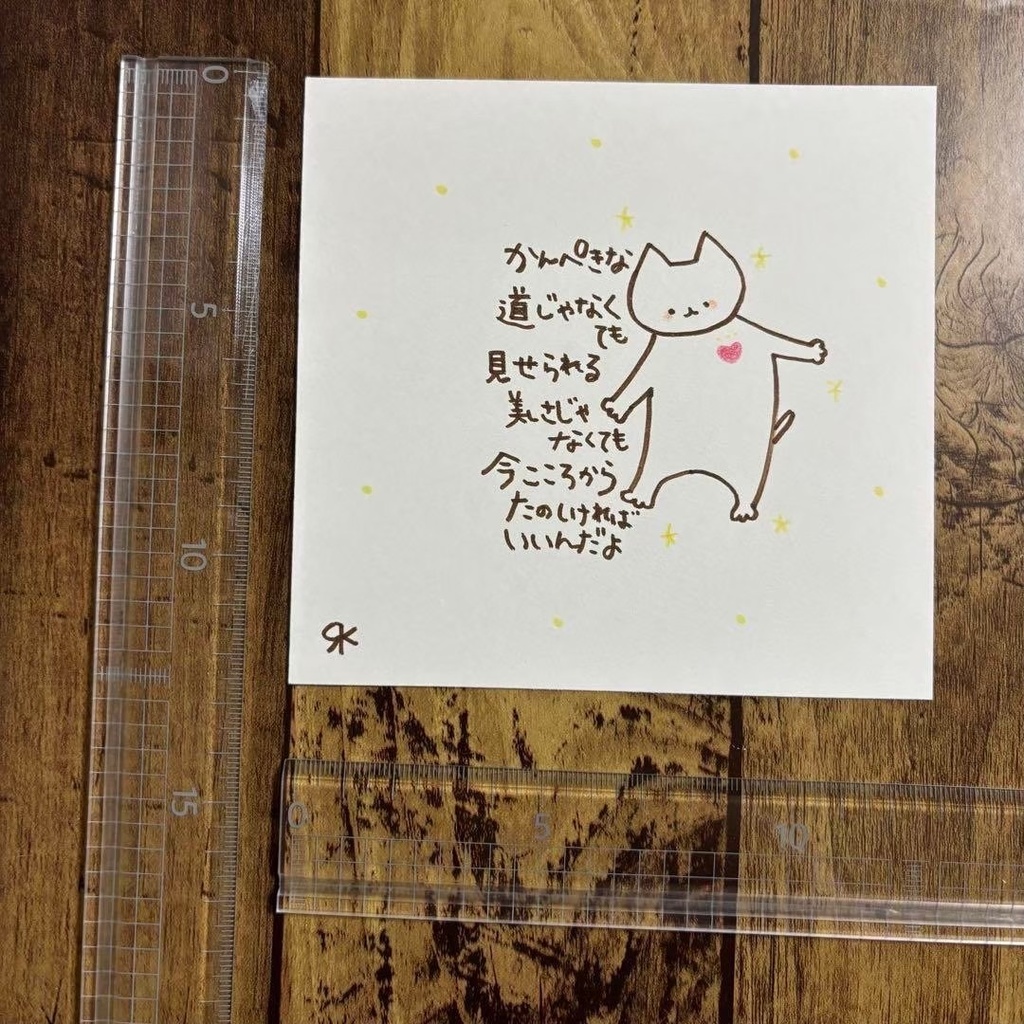 かんぺきな
道じゃなく
ても
見せられる
美しさじゃ
なくても
今こころから
たのしければ
いいんだよ
RK
0
5
10
15
0
5
10